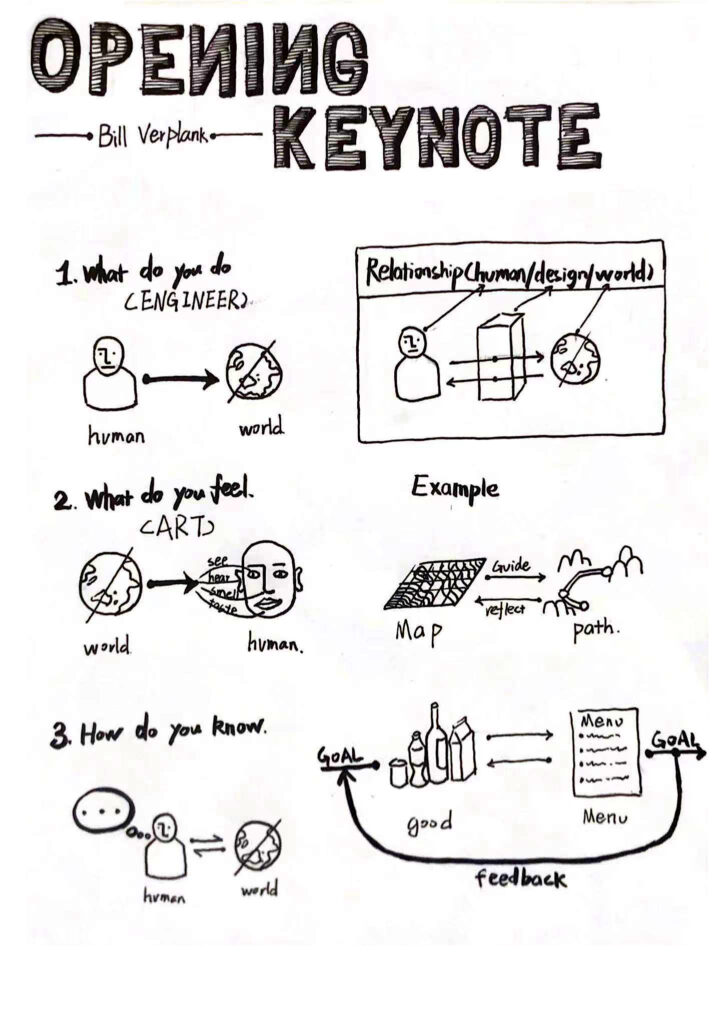 OPENING
KEYNOTE
Bill Verplank
1. What do you do
(ENGINEER)
human
world
Relationship(human/design/world)
2. What do you feel.
(ART)
see
hear
smell
taste
world
human.
Example
Guide
reflect
Map
path.
3. How do you know.
...
human
world
GOAL
good
Menu
Menu
GOAL
feedback